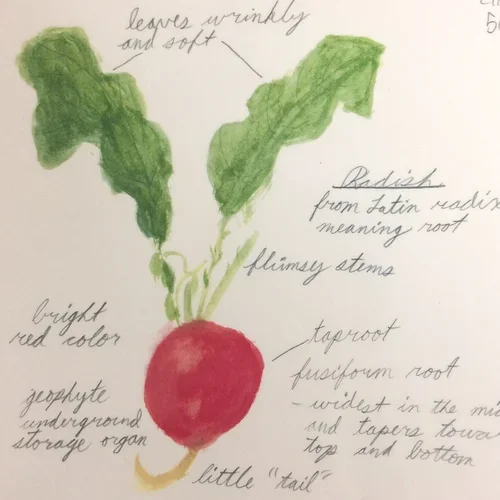 leaves wrinkly
and soft
Radish
from Latin radix
meaning root
flimsy stems
bright
red color
taproot
fusiform root
- widest in the
and tapers
top and bottom
geophyte
underground
storage organ
little "tail"